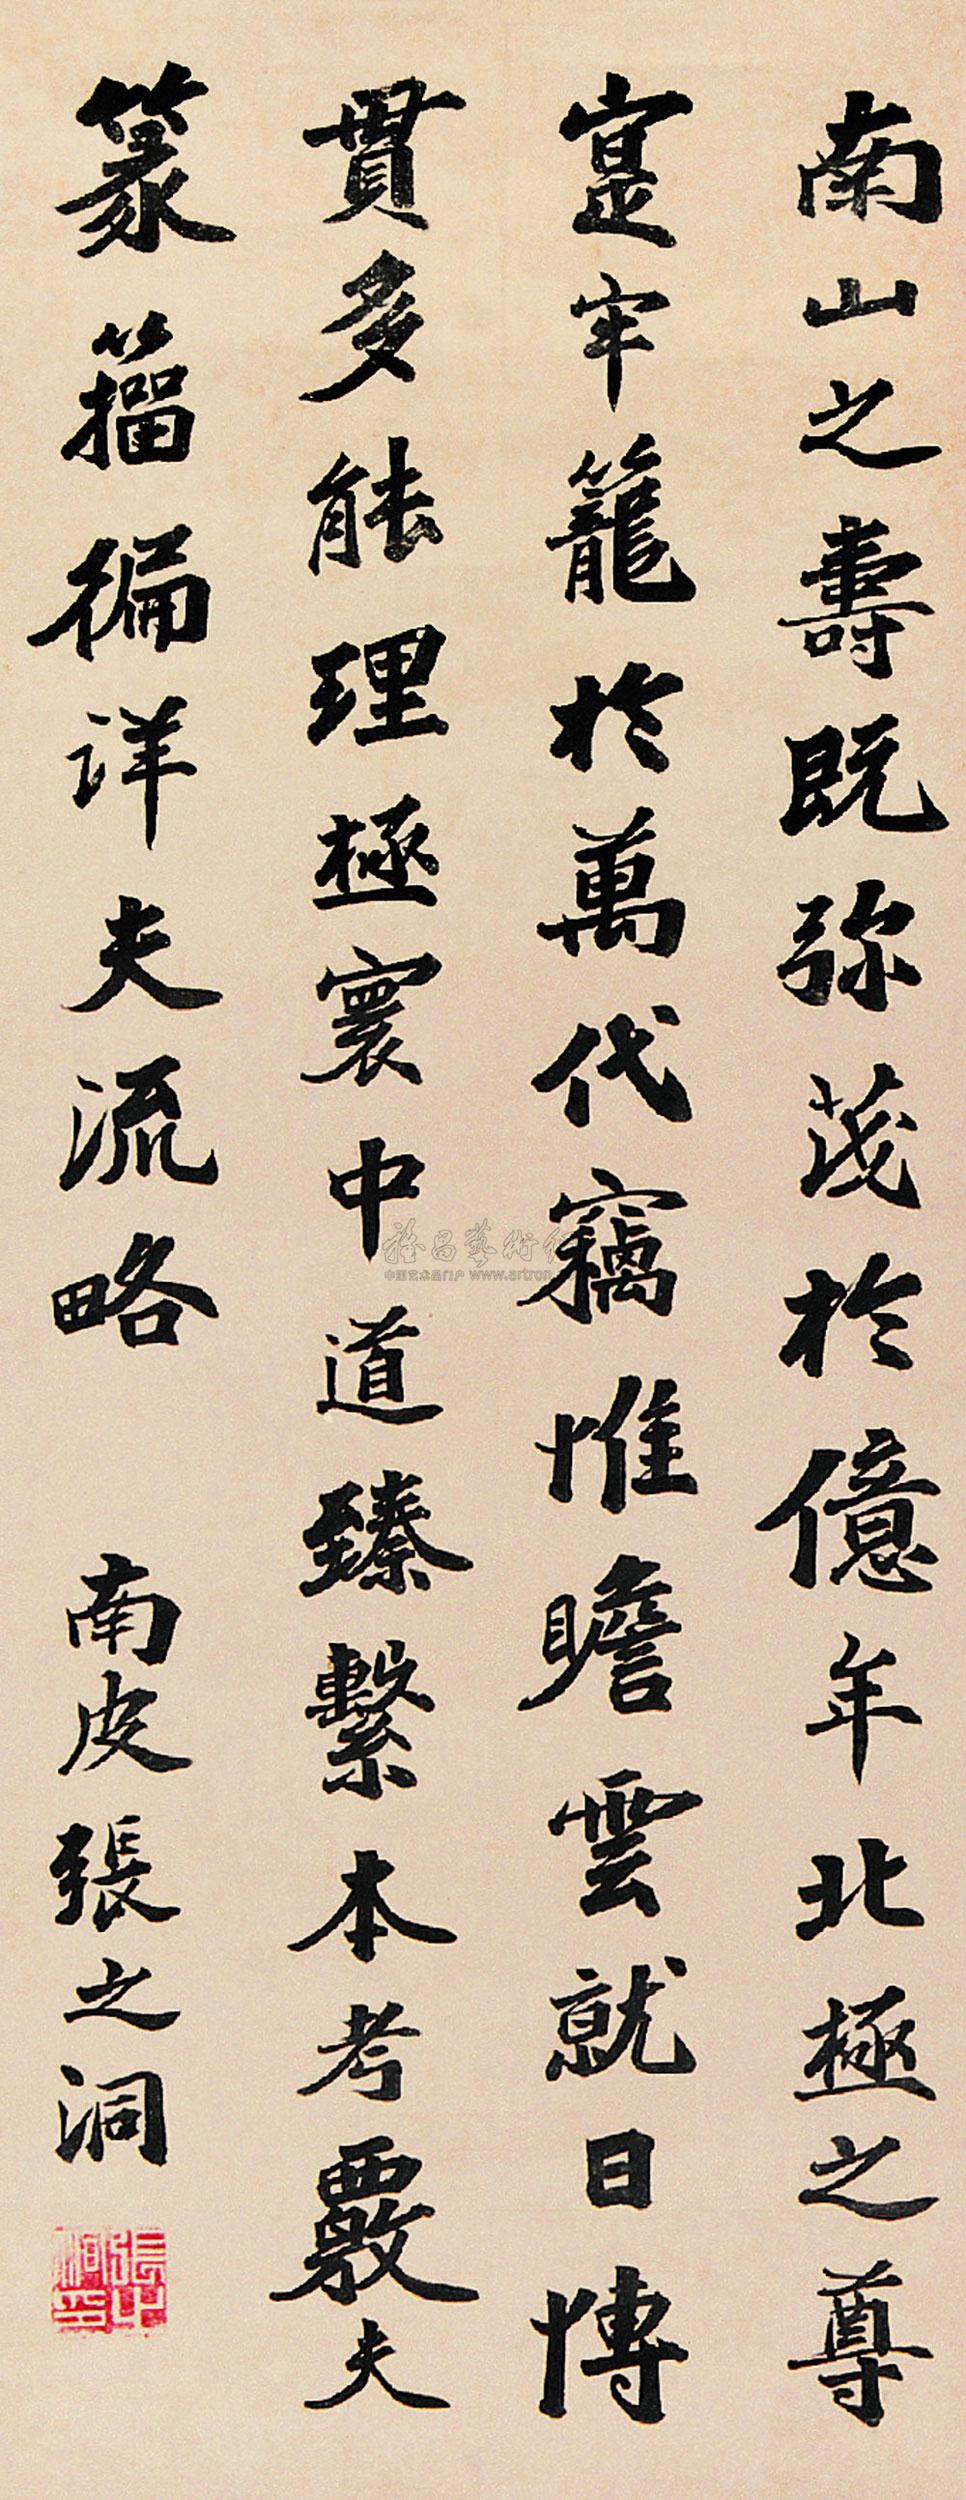 南山之壽既弥茂於億年北極之尊
寔牢籠於萬代竊惟瞻雲就日博
貫多能理極寰中道臻繫本考覈夫
篆籀徧詳夫流略 南皮張之洞
中国艺术品门户 www.artron